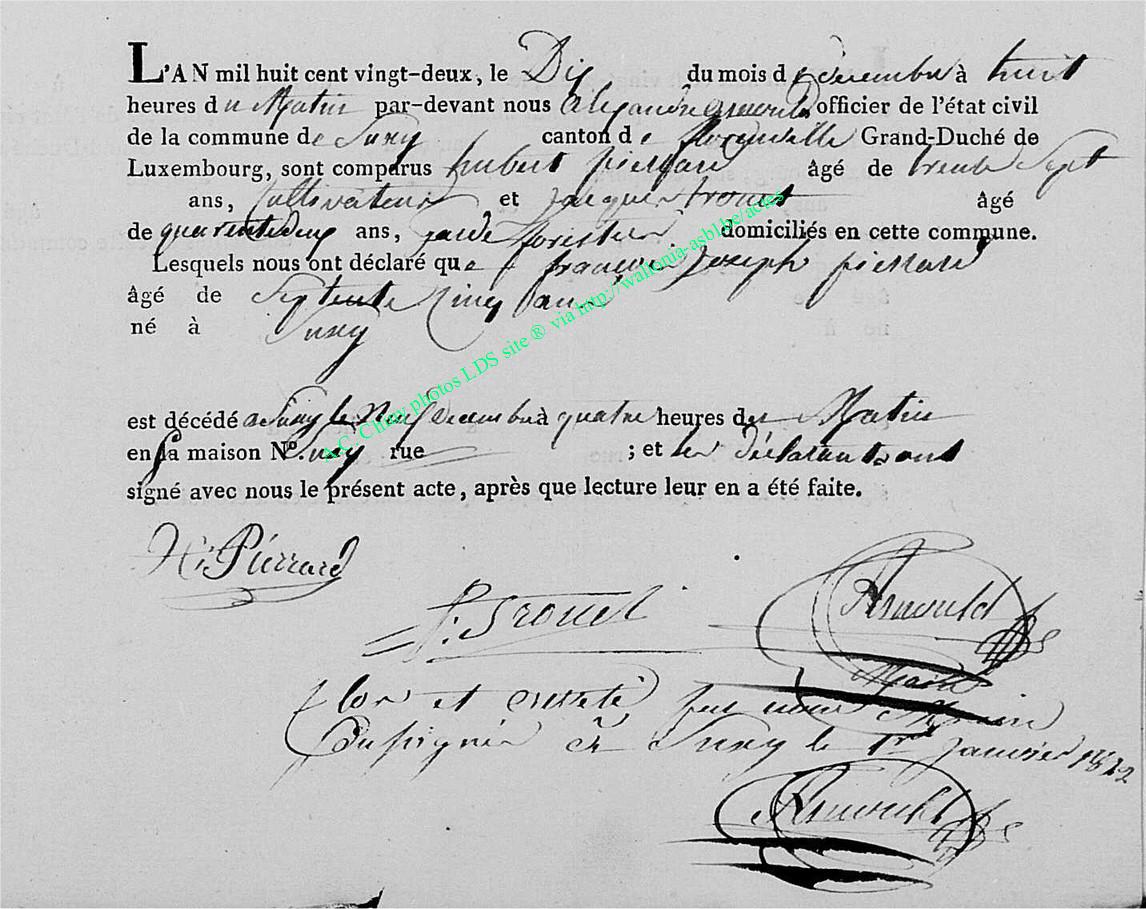 L'AN mil huit cent vingt-deux, le Dix du mois de décembre à huit
heures du Matin par-devant nous alexandre arnould officier de l'état civil
de la commune de Suxy canton de florenville Grand-Duché de
Luxembourg, sont comparus hubert pierrard âgé de trente Sept
ans, Cultivateur et jacque trouet âgé
de quarentedeux ans, garde forestier domiciliés en cette commune.
Lesquels nous ont déclaré que françois joseph pierrard
âgé de Septente Cinq ans
né à Suxy
est décédé a Suxy le Neuf decembre à quatre heures du Matin
en sa maison N°. Suxy rue ; et les déclarants ont
signé avec nous le présent acte, après que lecture leur en a été faite.
H: Pierrard
J: Trouet
Arnould
Maire
Clos et arreté par nous Maire
Soussigné à Suxy le 1er janvier 1822
Arnould
A.C. Chiny photos LDS site ® via http://wallonia-asbl.be/actes